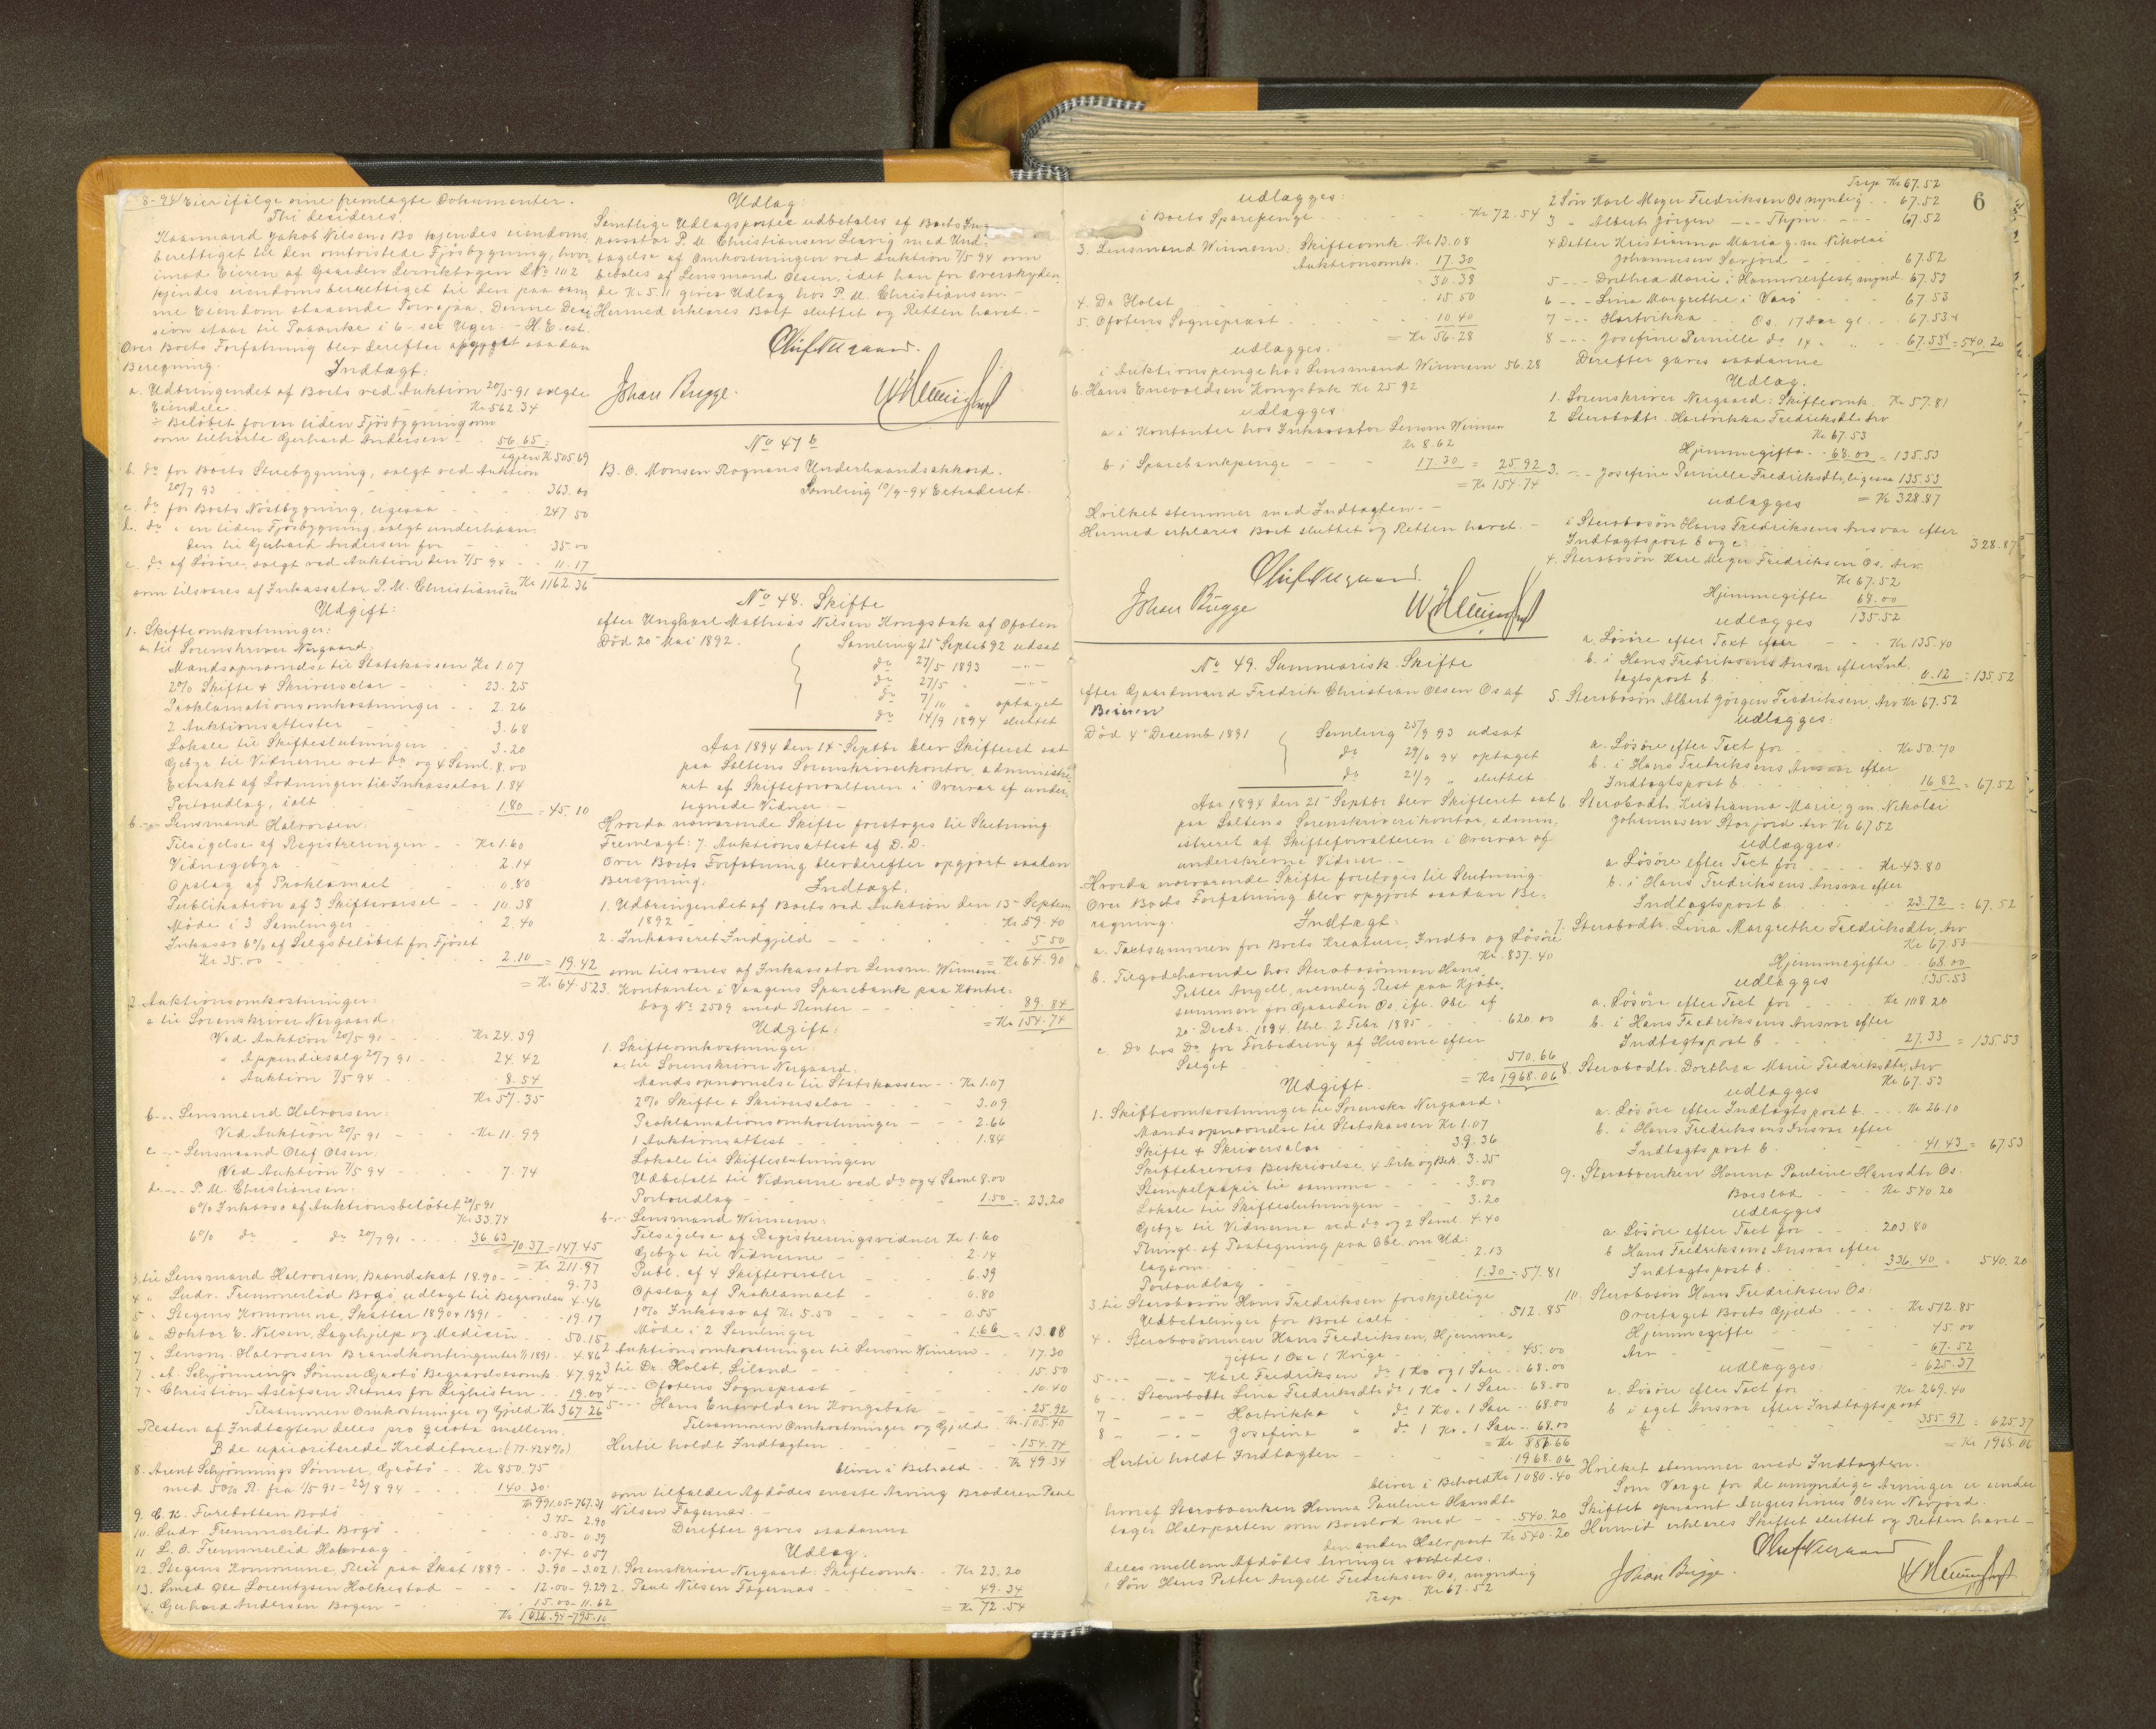 8-94 Eier ifølge sine fremlagte Dokumenter.
Thi desideres:
Kaarmand Jakob Nilsens Bo kjendes eiendoms
berettiget til den omtvistede Fjösbygning, hvor
imod Eieren af Gaarden Lerviktogen LNo 112
kjendes eiendomsberettiget til den paa sam
me Eiendom staaende Torvsjaa. Denne Deci
sion staar til Paaanke i 6- sex Uger. - H.E. est.
Over Boets Forfatning blev derefter opgjort saadan
Beregning.
Indtægt:
a. Udbringendet af Boets ved Auktion 20/5 91 solgte
Eiendele - Kr 562.34
÷ Beløbet for en liden Fjösbygning som
som tilhørte Gerhard Andersen - 56.65
igjen Kr 505.69
b. do for Boets Stuebygning, solgt ved Auktion
20/7 93 - 363.00
c. do for Boets Nöstbygning, ligesaa - 247.50
d. do " en liden Fjösbygning, solgt underhaan
den til Gerhard Andersen for - 35.00
e. do af Lösöre, solgt ved Auktion den 7/5 94 - 11.17
som tilsvares af Inkassator P. M. Christiansen = Kr 1162.36
Udgift:
1. Skifteomkostninger:
a. til Sorenskriver Nergaard:
Mandsopnævnelse til Statskassen Kr 1.07
2% Skifte & Skriversalær - 23.25
Proklamationsomkostninger - 2.26
2 Auktionsattester - 3.68
Lokale til Skifteslutningen - 3.20
Gebyr til Vidnerne ved do og 4 Saml. 8.00
Extrakt af Lodningen til Inkassator 1.84
Portoudlæg, ialt 1.80 = 45.10
b. -"- Lensmand Halvorsen:
Tilsigelse af Registreringen - Kr 1.60
Vidnegebyr - 2.14
Opslag af Proklamaet - 0.80
Publikation af 3 Skiftevarsel - 10.38
Möde i 3 Samlinger - 2.40
Inkasso 6% af Salgsbeløbet for Fjöset
Kr 35.00 - 2.10 = 19.42
= Kr 64.52
2. Auktionsomkostninger:
a til Sorenskriver Nergaard:
Ved Auktion 20/5 91 - Kr 24.39
" Appendixsalg 20/7 91 - 24.42
" Auktion 7/5 94 - 8.54
Kr 57.35
b -"- Lensmand Halvorsen:
Ved Auktion 20/5 91 - Kr 11.99
c -"- Lensmand Olaf Olsen:
Ved Auktion 7/5 94 - 7.74
d. -"- P. M. Christiansen:
6% Inkasso af Auktionsbeløbet 20/5 91
Kr 33.74
6% do do 20/7 91 - 36.63 70.37 = 147.45
= Kr 211.97
3. til Lensmand Halvorsen, Brandskat 1890 - 9.73
4 " Ludv. Tremmerlid Bogö, udlagt til Begravelsen 4.46
5 " Stegens Kommune, Skatter 1890 & 1891 - 19.17
6 " Doktor E. Nilsen, Lægehjelp og Medicin - 50.15
7 " Lensm. Halvorsen Brandkontingenter 1/1 1891 - 4.86
7 " A. Schjönnings Sönner Grötö Begravelsesomk. 47.92
7 " Christian Aslöfsen Reinæs for Ligkisten - 19.00
Tilsammen Omkostninger og Gjeld Kr 367.26
Resten af Indtægten deles pro quota mellem
B de uprioriterede Kreditorer: (77.424%)
8. Arent Schjönnings Sönner, Grötö - Kr 850.75
med 5% R. fra 1/5 91 - 23/8 94 - 140.30
Kr 991.05 - 767.31
9. C. K. Furebotten Bodö - 3.75 - 2.90
10. Ludv. Tremmerlid Bogö - 0.50 - 0.39
11 L. O. Tremmerlid - 0.74 - 0.57
12. Stegens Kommune, Rest paa Skat 1889 - 3.90 - 3.02
13. Smed Ole Lorentzsen Holkestad - 12.00 - 9.29
4. Gerhard Andersen Bogen - 15.00 - 11.62
Kr 1026.94 - 795.10
Udlæg:
Samtlige Udlægsposter udbetales af Boets In
kassator P. M. Christiansen Lervig med Und-
tagelse af Omkostningen ved Auktion 7/5 94 som
betales af Lensmand Olsen, idet han for overskyden
de Kr. 5.11 gives Udlæg hos P. M. Christiansen. -
Hermed erklæres Boet sluttet og Retten hævet. -
Oluf Nergaard.
Johan Brügge.
No 47 b
B. O. Monsen Rognans Underhaandsakkord.
Samling 10/9-94 Extraderet.
No 48. Skifte
efter Ungkarl Mathias Nilsen Kongsbak af Ofoten
Död 20 Mai 1892.
Samling 21 Septeb 92 udsat
do 27/5 1893 -"-
do 27/5 " -"-
do 7/11 " optaget
do 14/9 1894 sluttet
Aar 1894 den 14 Septbr blev Skifteret sat
paa Saltens Sorenskriverkontor, administre
ret af Skifteforvalteren i Overvær af under
tegnede Vidner. -
Hvorda nærværende Skifte foretoges til Slutning
Fremlagt: 7. Auktionsattest af D.D.
Over Boets Forfatning blev derefter opgjort saadan
Beregning:
Indtægt.
1. Udbringendet af Boets ved Auktion den 13 Septem
1892 - Kr 59.40
2. Inkasseret Indgjeld - 5.50
= Kr 64.90
som tilsvares af Inkassator Lensm. Winnem
3. Kontanter i Vaagens Sparebank paa Kontra-
bog No 2509 med Renter - 89.84
= Kr 154.74
Udgift:
1. Skifteomkostninger
a. til Sorenskriver Nergaard:
Mandsopnævnelse til Statskassen - Kr 1.07
2% Skifte & Skriversalær - 3.09
Proklamationsomkostninger - 2.66
1 Auktionsattest - 1.84
Lokale til Skifteslutningen
Udbetalt til Vidnerne ved do og 4 Saml 8.00
Portoudlæg - 1.50 = 23.20
b -"- Lensmand Winnem:
Tilsigelse af Registreringsvidner Kr 1.60
Gebyr til Vidnerne - 2.14
Publ. af 4 Skiftevarsler - 6.39
Opslag af Proklamaet - 0.80
10% Inkasso af Kr 5.50 - 0.55
Möde i 2 Samlinger - 1.66 = 13.08
2 Auktionsomkostninger til Lensm Winnem - 17.30
3 til Dr. Holst, Liland - 15.50
4 -"- Ofotens Sogneprest - 10.40
5 -"- Hans Enevoldsen Kongsbak - 25.92
Tilsammen Omkostninger og Gjeld Kr 105.40
Hertil holdt Indtægten - 154.74
bliver i Behold - Kr 49.34
som tilfalder Afdödes eneste Arving Broderen Paul
Nilsen Fagernæs. -
Derefter gaves saadanne
Udlæg.
1. Sorenskriver Nergaard: Skifteomk. - Kr 23.20
2. Paul Nilsen Fagernæs - 49.34
= Kr 72.54
udlægges:
i Boets Sparepenge - Kr 72.54
3. Lensmand Winnem: Skifteomk. Kr 13.08
Auktionsomk. 17.30
30.38
4. Dr Holst - 15.50
5. Ofotens Sogneprest - 10.40
= Kr 56.28
udlægges:
i Auktionspenge hos Lensmand Winnem 56.28
6. Hans Enevoldsen Kongsbak Kr 25.92
udlægges:
a i Kontanter hos Inkassator Lensm Winnem
Kr 8.62
b i Sparebankpenge - 17.30 = 25.92
= Kr 154.74
Hvilket stemmer med Indtægten. -
Hermed erklæres Boet sluttet og Retten hævet. -
Oluf Nergaard.
Johan Brügge
No 49. Summarisk Skifte
efter Gaardmand Fredrik Christian Olsen Os af
Beieren
Död 4 Decemb 1891
Samling 25/9 93 udsat
do 29/6 94 optaget
do 21/9 " sluttet
Aar 1894 den 21 Septbr blev Skifteret sat
paa Saltens Sorenskriverikontor, admin-
istreret af Skifteforvalteren i Overvær af
underskrevne Vidner. -
Hvorda nærværende Skifte foretoges til Slutning.
Over Boets Forfatning blev opgjort saadan Be-
regning.
Indtægt:
a. Taxtsummen for Boets Kreature, Indbo og Lösöre
Kr. 837.40
b. Tilgodehavende hos Stervbosönnen Hans
Petter Angell, nemlig Rest paa Kjöbe-
summen for Gaarden Os, ifl. Obl. af
20 Decbr. 1894, thl. 2 Febr 1885 - 620.00
c. Do hos Do for Forbedring af Husene efter
Salget - 510.66
= Kr 1968.06
Udgift.
1. Skifteomkostninger til Sorenskr Nergaard:
Mandsopnævnelse til Statskassen Kr 1.07
Skifte & Skriversalær - 39.36
Skiftebrevets Beskrivelse, 4 Ark og Bek. 3.35
Stempelpapir til samme - 3.00
Lokale til Skifteslutningen - 3.20
Gebyr til Vidnerne ved do og 2 Saml. 4.40
Thingl. af Paategning paa Obl. om Ud-
lægsom. - 2.13
Portoudlæg - 1.30 = 57.81
3. til Stervbosön Hans Fredriksen forskjellige
Udbetalinger for Boet ialt - 512.85
4. " Stervbosönnen Hans Fredriksen, Hjemme-
gifte 1 Oxe 1 Kvige - 45.00
5 -"- -"- Karl Fredriksen do 1 Ko og 1 Sau - 68.00
6 -"- Stervbodtr Lina Fredriksdtr do 1 Ko " 1 Sau - 68.00
7 - -"- Hartvikka " do 1 Ko " 1 Sau - 68.00
8 - -"- Josefine " do 1 Ko " 1 Sau - 68.00
= Kr 887.66
Hertil holdt Indtægten - 1968.06
bliver i Behold Kr 1080.40
hvoraf Stervboenken Hanna Pauline Hansdtr
tager Halvparten som Boeslod med - 540.20
den anden Halvpart Kr 540.20
deles mellem Afdödes Arvinger saaledes:
1 Sön Hans Petter Angell Fredriksen Os, myndig
Trsp. Kr 67.52
6
Trsp Kr 67.52
2 Sön Karl Meyer Fredriksen Os myndig - 67.52
3 " Albert Jörgen -"- - 67.52
4 Datter Kristianna Maria g. m. Nikolai
Johannesen Storjord - 67.52
5 -"- Dorthea Marie i Hammerfest, mynd. 67.53
6 -"- Lina Margrethe i Værö - 67.53
7 -"- Hartvikka Os. 17 Aar gl. - 67.53
8 -"- Josefine Pernille do 14 " " - 67.53 = 540.20
Derefter gaves saadanne
Udlæg.
1. Sorenskriver Nergaard: Skifteomk. Kr 57.81
2 Stervbodtr. Hartvikka Fredriksdtr Arv
Kr 67.53
Hjemmegifte - 68.00 = 135.53
3. -"- Josefine Pernille Fredriksdtr, ligesaa 135.53
= Kr 328.87
udlægges
i Stervbosön Hans Fredriksens Ansvar efter
Indtægtspost b og c - 328.87
4. Stervbosön Karl Meyer Fredriksen Os, Arv
Kr 67.52
Hjemmegifte 68.00
135.52
udlægges
a. Lösöre efter Taxt efter - Kr 135.40
b. i Hans Fredriksens Ansvar efter Ind
tægtspost b - 0.12 = 135.52
5. Stervbosön Albert Jörgen Fredriksen, Arv Kr 67.52
udlægges:
a. Lösöre efter Taxt for - Kr 50.70
b. i Hans Fredriksens Ansvar efter
Indtægtspost b - 16.82 = 67.52
6. Stervbodtr. Kristianna Marie, g.m. Nikolai
Johannesen Storjord Arv Kr 67.52
udlægges:
a. Lösöre efter Taxt for - Kr 43.80
b. i Hans Fredriksens Ansvar efter
Indtægtspost b - 23.72 = 67.52
7. Stervbodtr. Lina Margrethe Fredriksdtr, Arv
Kr 67.53
Hjemmegifte - 68.00
135.53
udlægges
a. Lösöre efter Taxt for - Kr 108.20
b. i Hans Fredriksens Ansvar efter
Indtægtspost b - 27.33 = 135.53
8. Stervbodtr. Dorthea Marie Fredriksdtr, Arv
Kr 67.53
udlægges
a. Lösöre efter Indtægtspost b. - Kr 26.10
b. i Hans Fredriksens Ansvar efter
Indtægtspost b. - 41.43 = 67.53
9. Stervboenken Hanna Pauline Hansdtr Os.
Boeslod - Kr 540.20
udlægges
a. Lösöre efter Taxt for - 203.80
b Hans Fredriksens Ansvar efter
Indtægtspost b. - 336.40 = 540.20
10. Stervbosön Hans Fredriksen Os:
Overtaget Boets Gjeld - Kr 512.85
Hjemmegifte - 45.00
Arv - 67.52
625.37
udlægges:
a. Lösöre efter Taxt for - Kr 269.40
b i eget Ansvar efter Indtægtspost
b - 355.97 = 625.37
= Kr 1968.06
Hvilket stemmer med Indtægten.
Som Værge for de umyndige Arvinger er under
Skiftet opnævnt Augustinus Olsen Nævjord.
Hermed erklæres Skiftet sluttet og Retten hævet -
Oluf Nergaard
Johan Brügge.